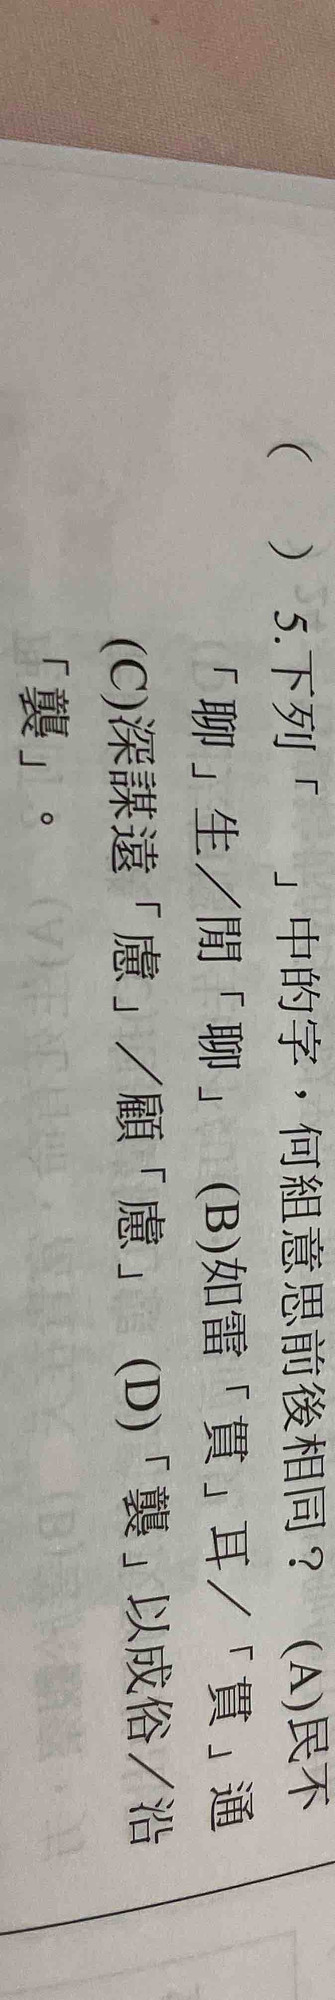 (　) 5.下列「　」中的字，何組意思前後相同？ (A)民不
「聊」生／閒「聊」 (B)如雷「貫」耳／「貫」通
(C)深謀遠「慮」／顧「慮」 (D)「襲」以成俗／沿
「襲」。